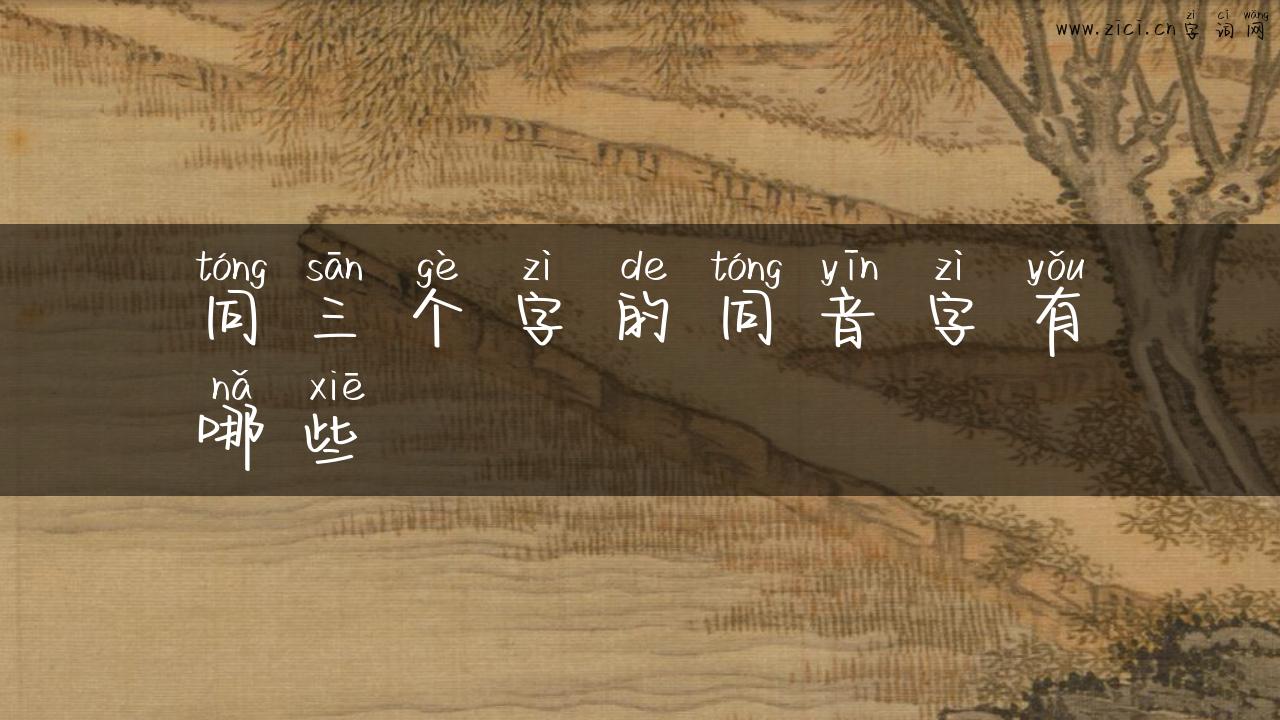 zì cí wǎng
www.zici.cn字词网
tóng sān gè zì de tóng yīn zì yǒu
同三个字的同音字有
nǎ xiē
哪些